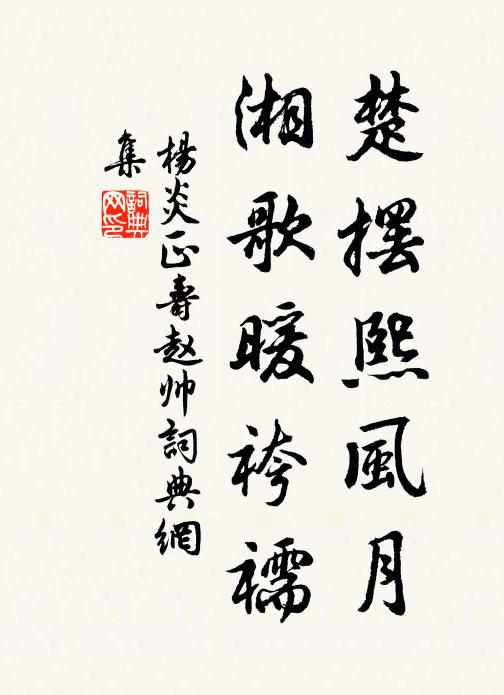 楚擺熙風月
湘歌暖袴襦
楊炎正壽赵帅詞典網
集
詞典网印